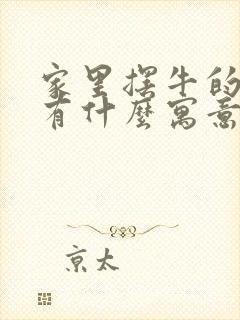 家里摆牛的
有什麽寓意
京太